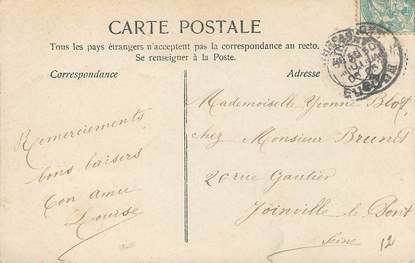 CARTE POSTALE
Tous les pays étrangers n'acceptent pas la correspondance au recto.
Se renseigner à la Poste.
Correspondance
Adresse
Remerciements
bons baisers
Ton amie
Louise
Mademoiselle Yvonne Blot
chez Monsieur Brunet
20 rue Gautier
Joinville le Pont
Seine
12